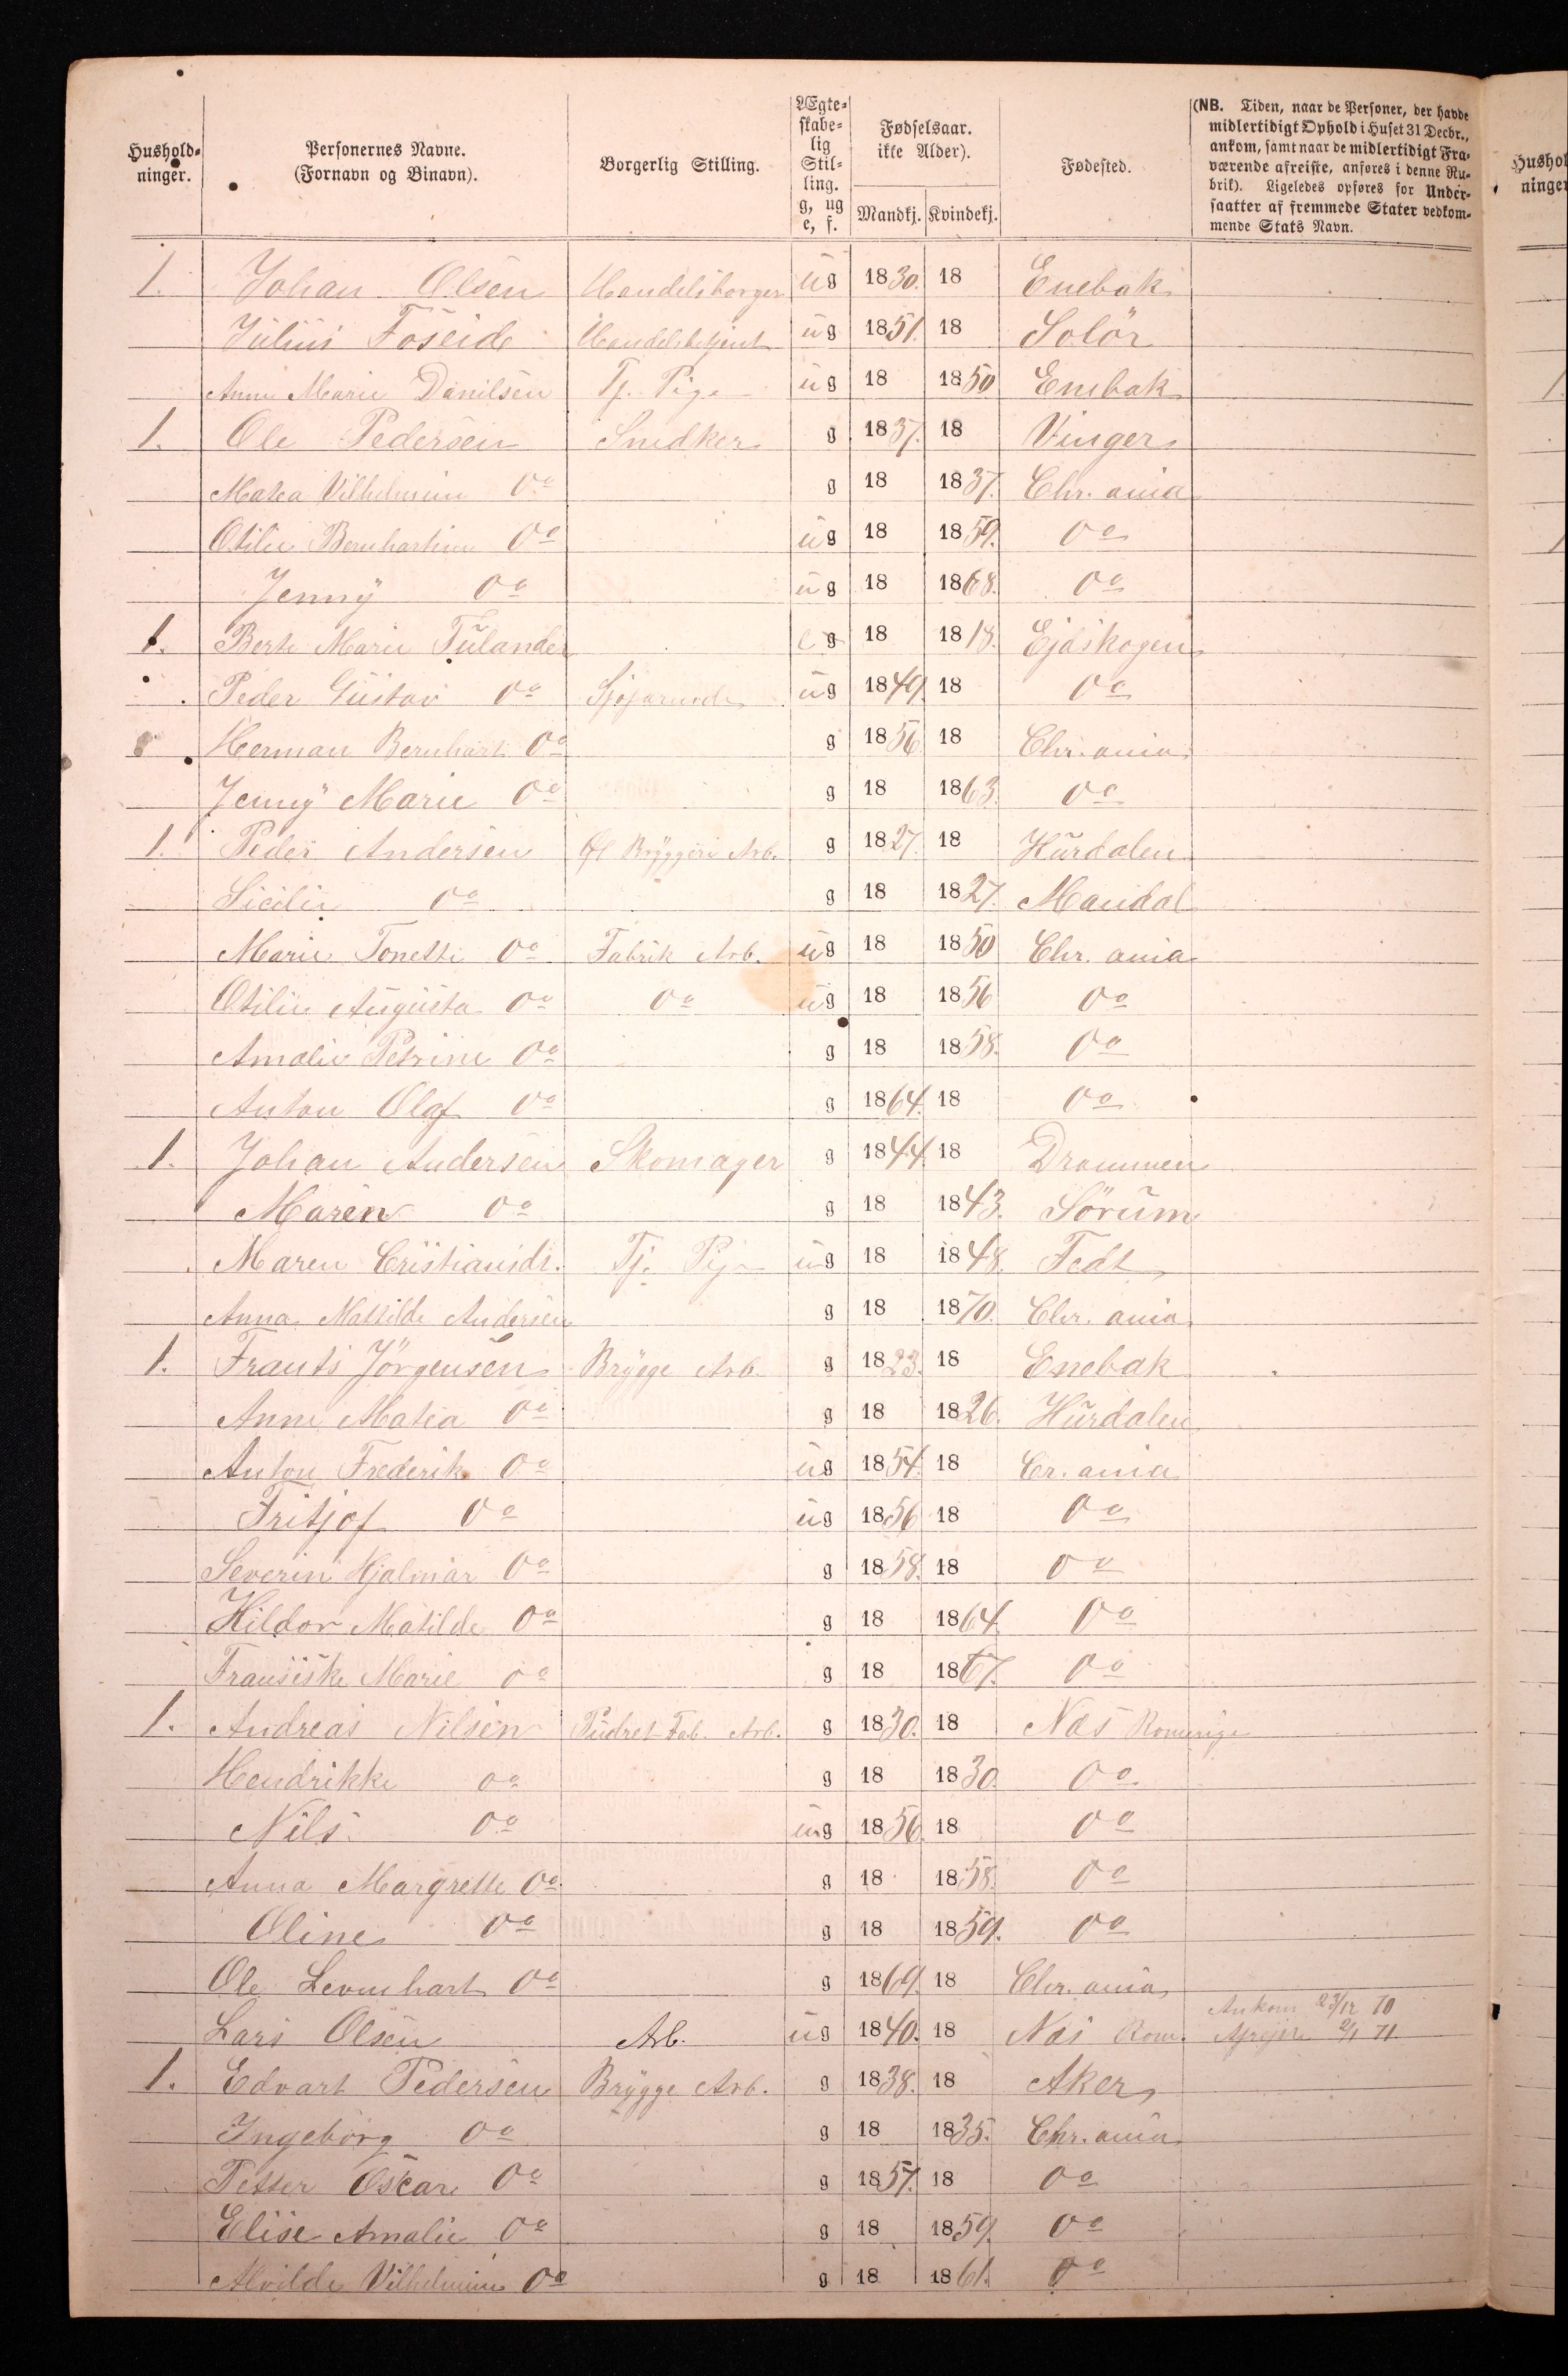 Hushold-
ninger.
Personernes Navne.
(Fornavn og Binavn).
Borgerlig Stilling.
Ægte-
skabe-
lig
Stil-
ling.
g, ug
e, f.
Fødselsaar.
ikke Alder).
Mandkj. Kvindekj.
Fødested.
(NB. Tiden, naar de Personer, der havde
midlertidigt Ophold i Huset 31 Decbr.,
ankom, samt naar de midlertidigt Fra-
værende afreiste, anføres i denne Ru-
brik). Ligeledes opføres for Under-
saatter af fremmede Stater vedkom-
mende Stats Navn.
1. Johan Olsen Handelsborger ug 1830. 18 Enebak
Julius Foseide Handelsbetjent ug 1851. 18 Solör
Anne Marie Danilsen Tj. Pige ug 18 1850 Enebak
1. Ole Pedersen Snedker g 1837. 18 Vinger
Matea Vilhelmine Do g 18 1837. Chr. ania
Otilie Bernhartine Do ug 18 1859. Do
Jenny Do ug 18 1868. Do
1. Berte Marie Tulander e g 18 1818. Ejdskogen
Peder Gustav Do Sjöfarende ug 1849. 18 Do
Herman Bernhart Do g 1856. 18 Chr. ania
Jenny Marie Do g 18 1863. Do
1. Peder Andersen Øl Bryggeri Arb. g 1827. 18 Hurdalen
Sicilie Do g 18 1827. Mandal
Marie Tonette Do Fabrik Arb. ug 18 1850 Chr. ania
Otilie Augusta Do Do ug 18 1856 Do
Amalie Petrine Do g 18 1858. Do
Anton Olaf Do g 1864. 18 Do
1. Johan Andersen Skomager g 1844. 18 Drammen
Maren Do g 18 1843. Sörum
Maren Cristiansdt. Tj. Pige ug 18 1848. Fedt
Anna Matilde Andersen g 18 1870. Chr. ania
1. Frants Jörgensen Brygge Arb. g 1823. 18 Enebak
Anne Matea Do g 18 1826. Hurdalen
Anton Frederik Do ug 1854. 18 Cr. ania
Fritjof Do ug 1856 18 Do
Severin Hjalmar Do g 1858. 18 Do
Hildor Matilde Do g 18 1864. Do
Fransiske Marie Do g 18 1867. Do
1. Andreas Nilsen Pudret Fab. Arb. g 1830. 18 Næs Romerige
Hendrikke Do g 18 1830. Do
Nils Do ug 1856. 18 Do
Anna Margrette Do g 18 1858. Do
Oline Do g 18 1859. Do
Ole Levenhart Do g 1869. 18 Chr. ania
Lars Olsen Arb. ug 1840. 18 Næs Rom. Ankom 23/12 70
Afrejste 2/1 71
1. Edvart Pedersen Brygge Arb. g 1838. 18 Aker
Ingeborg Do g 18 1835. Chr. ania
Petter Oscar Do g 1857. 18 Do
Elise Amalie Do g 18 1859. Do
Alvilde Vilhelmine Do g 18 1861. Do